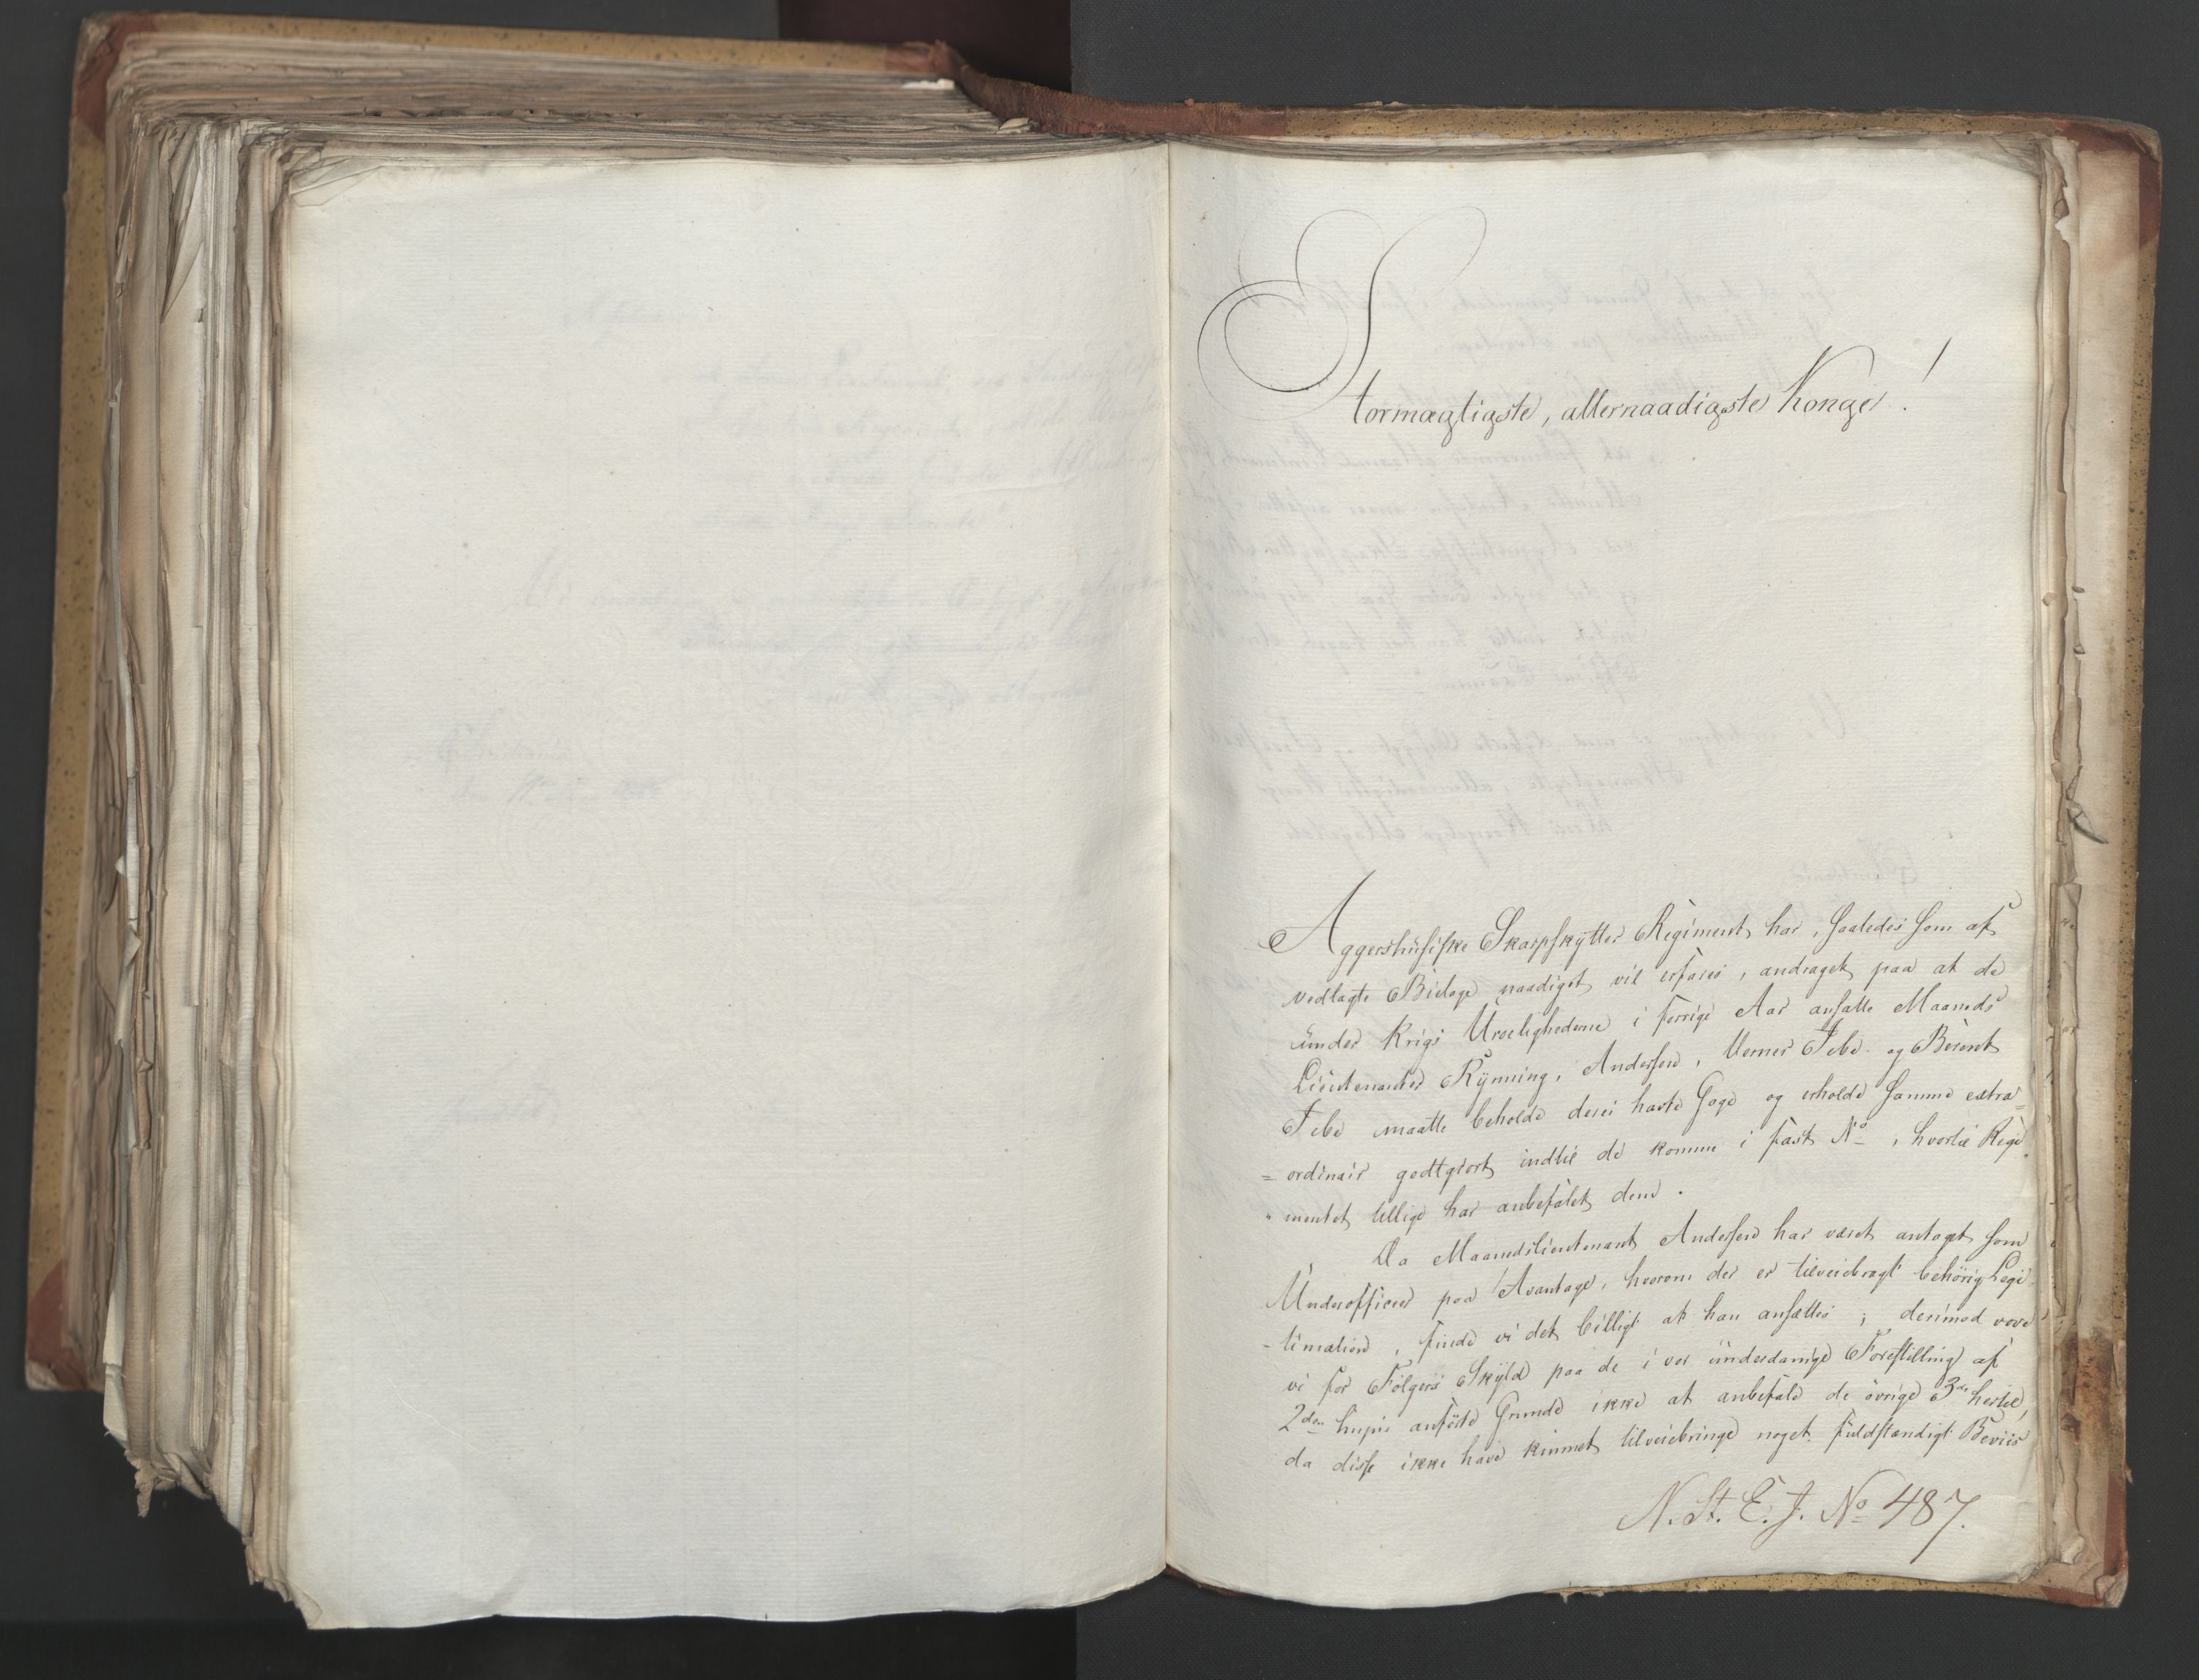 Stormægtigste, allernaadigste Konge!
Aggershusiske Skarpskytter Regiment har, saaledes som af
vedlagte Bielage naadigst vil erfares, andraget paa at de
under Krigs Urolighederne i forrige Aar ansatte Maaneds
Lieutenanter Rynning, Andersen, Verner Jebe og Berent
Jebe maatte beholde deres havte Gage og erholde samme extra=
=ordinair godtgiort indtil de komme i fast No, hvortil Regi
"mentet tillige har anbefalet dem.
Da Maanedslieutenant Andersen har været antaget som
Underofficeer paa Avantage, hvorom der er tilveiebragt behörig Legi
-timation, finde vi det billigt at han ansættes; derimod vove
vi for Fölgers Skyld paa de i vor underdanige Forestilling af
2den hujus anförte Grunde ikke at anbefale de övrige 3de hertil,
da disse ikke have kunnet tilveiebringe noget fuldstændigt Beviis
N. St. E. J. No 487.